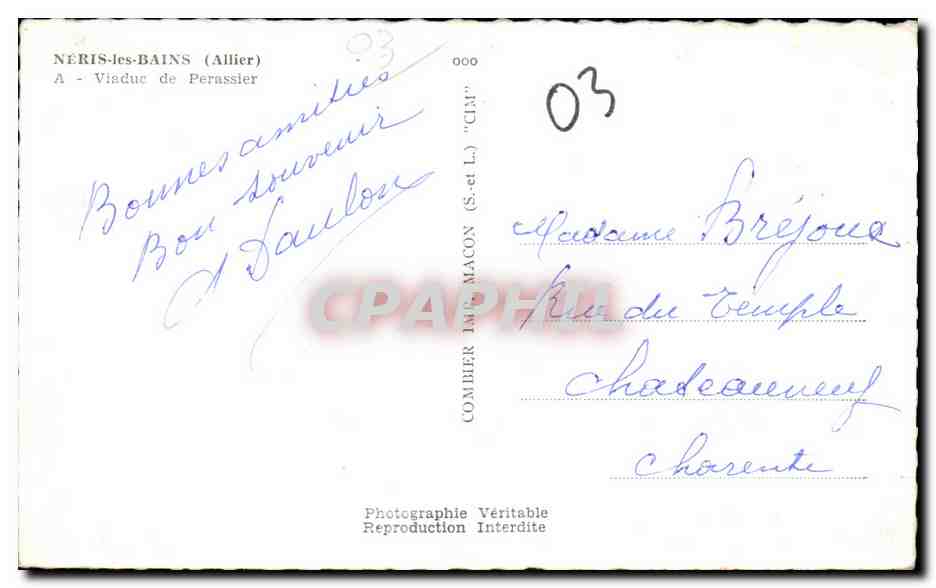 NÉRIS-les-BAINS (Allier)
A - Viaduc de Perassier
03
Bonnes amitiés
Bon souvenir
ooo
COMBIER IMP. MACON (S.-et L.) "CIM"
03
Madame Bréjoux
Rue du Temple
Chateauneuf
Charente
CPAPHIL
Photographie Véritable
Reproduction Interdite